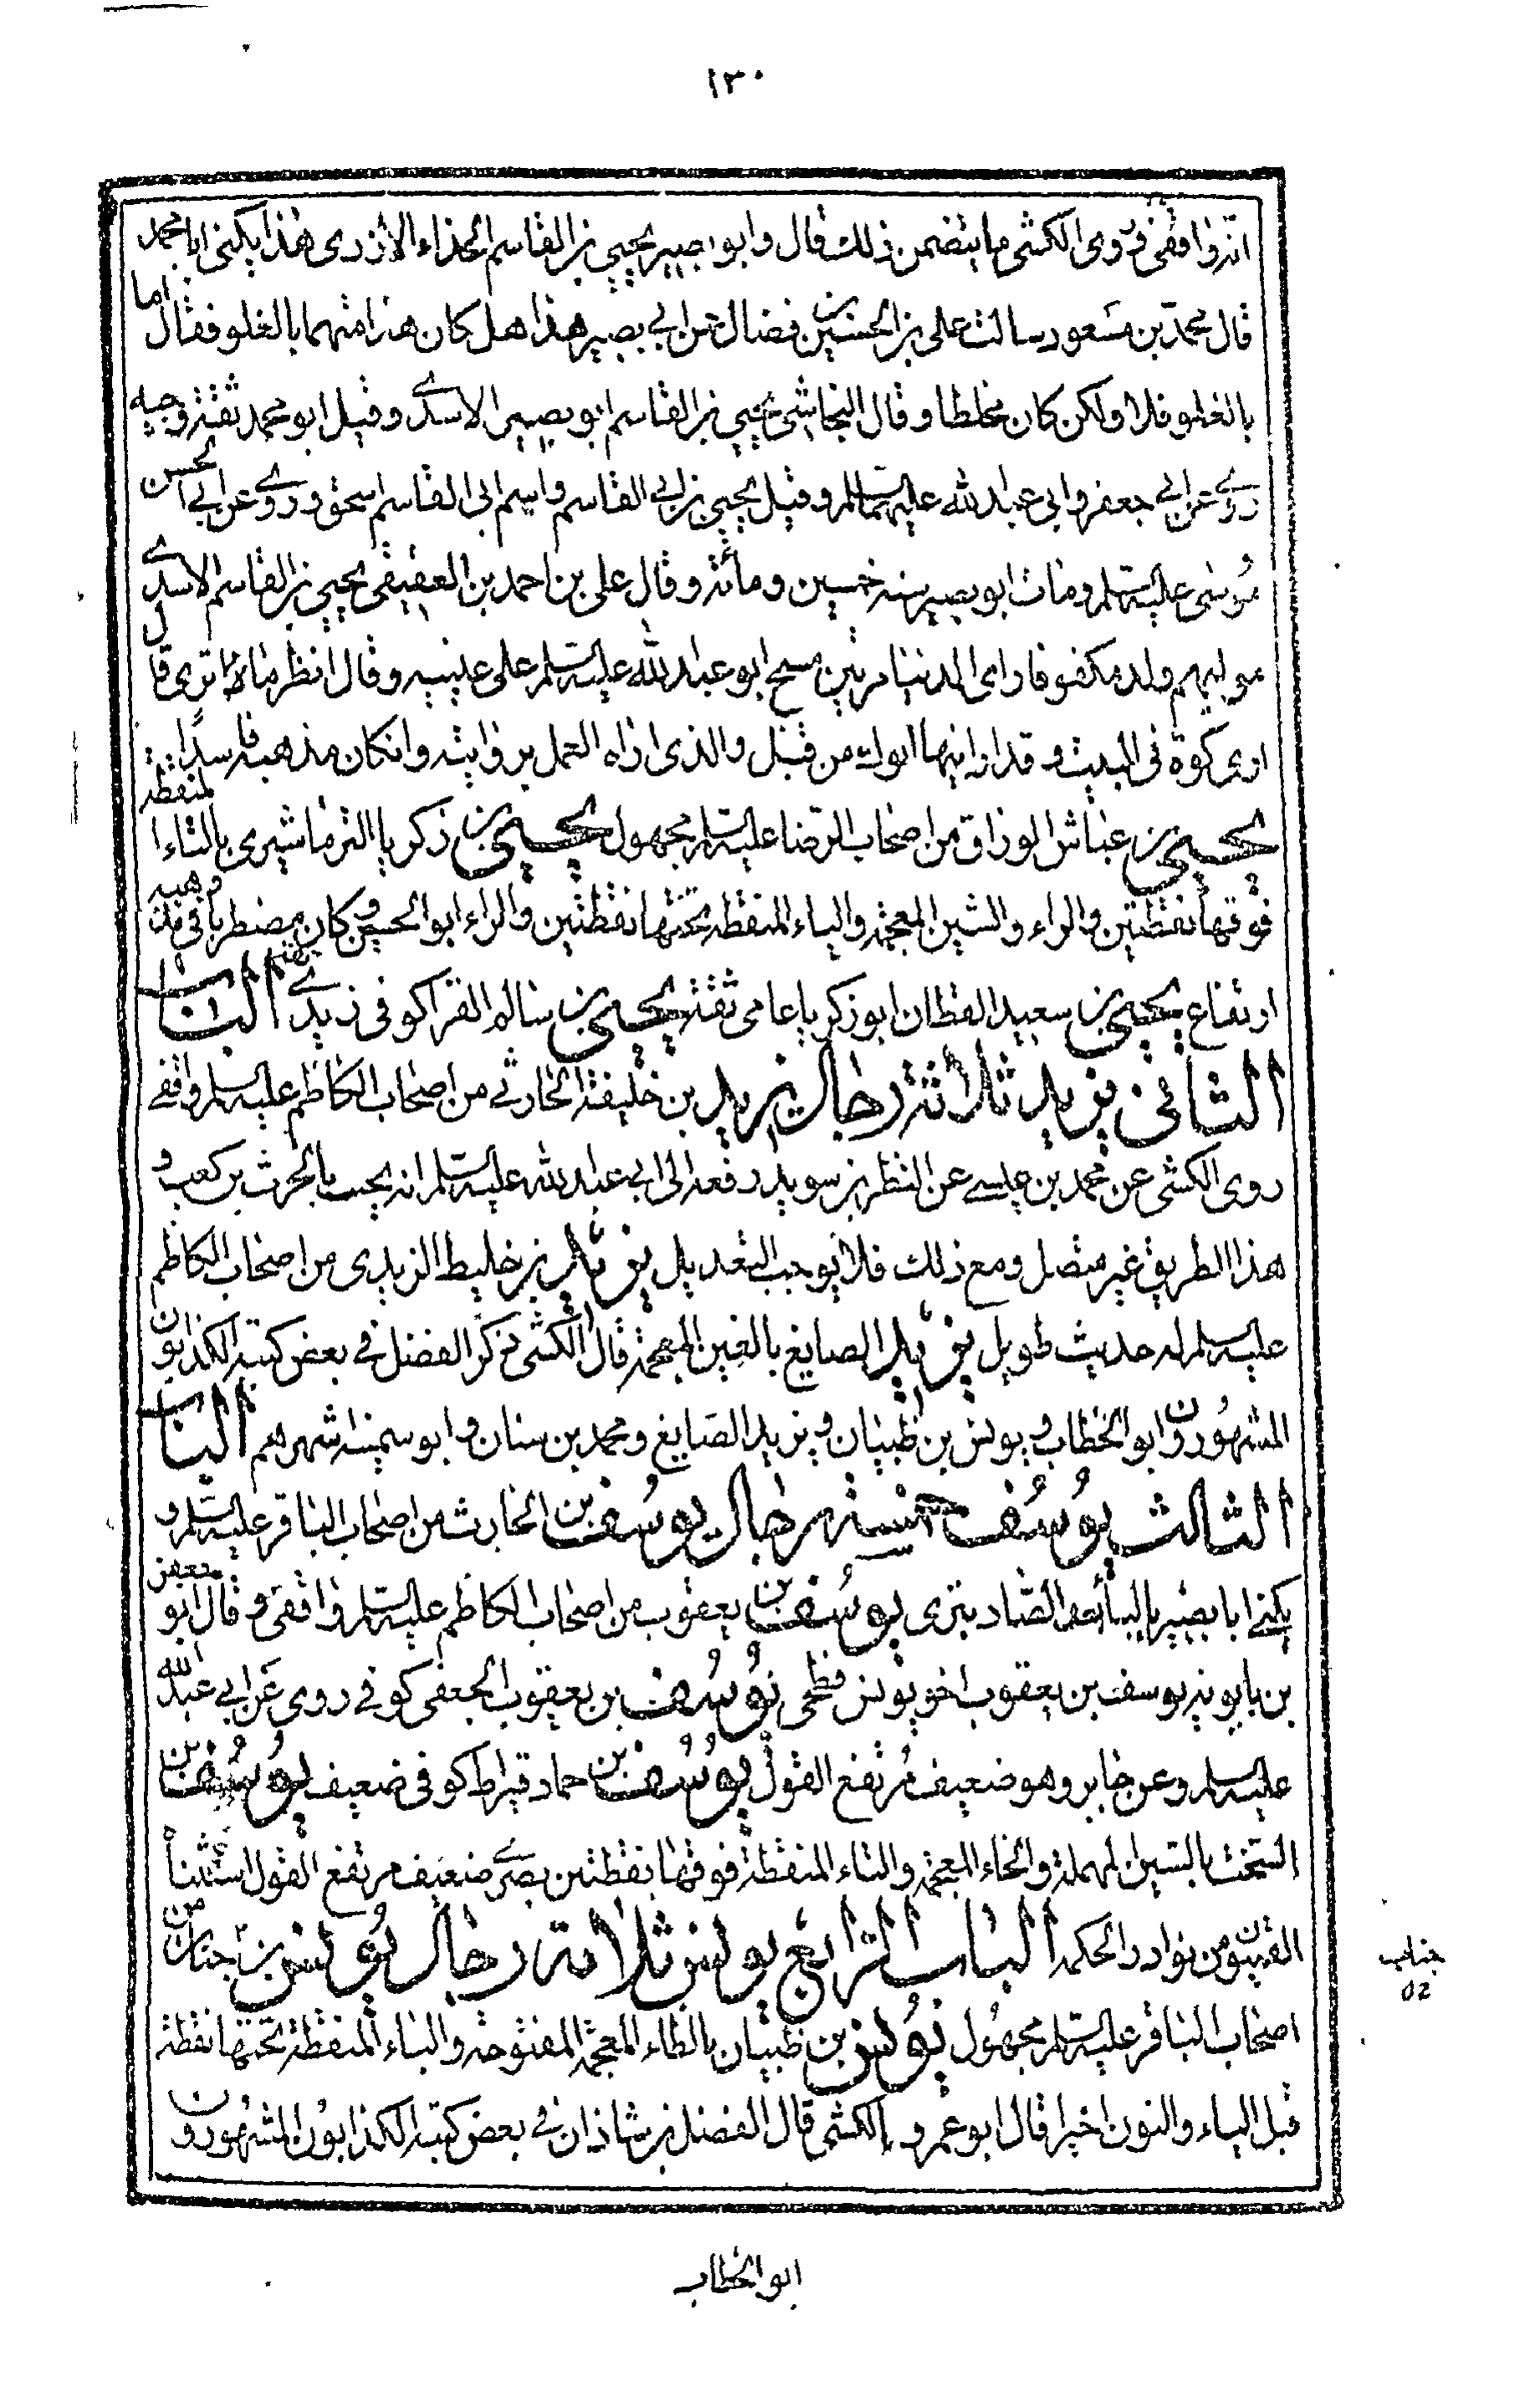 ١٣٠
انه واقفي وروى الكشي ما يتضمن ذلك قال وابو بصير يحيى بن القاسم الحذاء الازدى هذا يكنى ابا محمد
قال محمد بن مسعود سالت على بن الحسن بن فضال عن ابي بصير هذا هل كان هذا متهما بالغلو فقال اما
بالغلو فلا ولكن كان مخلطا وقال النجاشى يحيى بن القاسم ابو بصير الاسدى وقيل ابو محمد ثقة وجيه
روى عن ابي جعفر وابى عبد الله عليهما السلم وقيل يحيى بن ابي القاسم واسم ابى القاسم اسحق وروى عن ابي الحسن
موسى عليه السلم ومات ابو بصير سنة خمسين ومائة وقال على بن احمد بن العقيقى يحيى بن القاسم الاسدى
موليهم ولد مكفوفا راى الدنيا مرتين مسح ابو عبد الله عليه السلم على عينيه وقال انظر ماذا ترى قال
ارى كوة فى البيت وقد ارانيها ابوك من قبل والذى اراه العمل بروايته وان كان مذهبه فاسدا
يحيى بن عباش الوراق من اصحاب الرضا عليه السلم مجهول يحيى بن زكريا الترماشيرى بالتاء المنقطة
فوقها نقطتين والراء والشين المعجمة والياء المنقطة تحتها نقطتين والراء ابو الحسين وكان مضطربا فى مذهبه
ارتفاع يحيى بن سعيد القطان ابو زكريا عامى ثقة يحيى بن سالم الفرا كوفى زيدى الباب
الثانى يزيد ثلاثة رجال يزيد بن خليفة الحارثى من اصحاب الكاظم عليه السلم واقفى
روى الكشى عن محمد بن عيسى عن النظر بن سويد رفعه الى ابي عبد الله عليه السلم انه نجيب بالحرث بن كعب و
هذا الطريق غير متصل ومع ذلك فلا يوجب التعديل يزيد بن خليط الزيدى من اصحاب الكاظم
عليه السلم له حديث طويل يزيد الصايغ بالغين المعجمة قال الكشى ذكر الفضل في بعض كتبه الكذابون
المشهورون ابو الخطاب ويونس بن ظبيان ويزيد الصايغ ومحمد بن سنان وابو سمينه اشهرهم الباب
الثالث يوسف خمسة رجال يوسف بن الحارث من اصحاب الباقر عليه السلم و
يكنى ابا بصير بالياء بعد الصاد بترى يوسف بن يعقوب من اصحاب الكاظم عليه السلم واقفى وقال ابو جعفر
بن بابويه يوسف بن يعقوب اخو يونس فطحى يوسف بن يعقوب الجعفى كوفى روى عن ابي عبد الله
عليه السلم وعن جابر وهو ضعيف مرتفع القول يوسف بن حماد قيراط كوفى ضعيف يوسف بن
السخت بالسين المهملة والخاء المعجمة والتاء المنقطة فوقها نقطتين بصرى ضعيف مرتفع القول استثناه
القميون من نوادر الحكمة الباب الرابع يونس ثلاثة رجال يونس بن جناب من
جناب
٥٢
اصحاب الباقر عليه السلم مجهول يونس بن ظبيان بالظاء المعجمة المفتوحة والباء المنقطة تحتها نقطة
قبل الياء والنون اخيرا قال ابو عمرو الكشى قال الفضل بن شاذان في بعض كتبه الكذابون المشهورون
ابو الخطاب